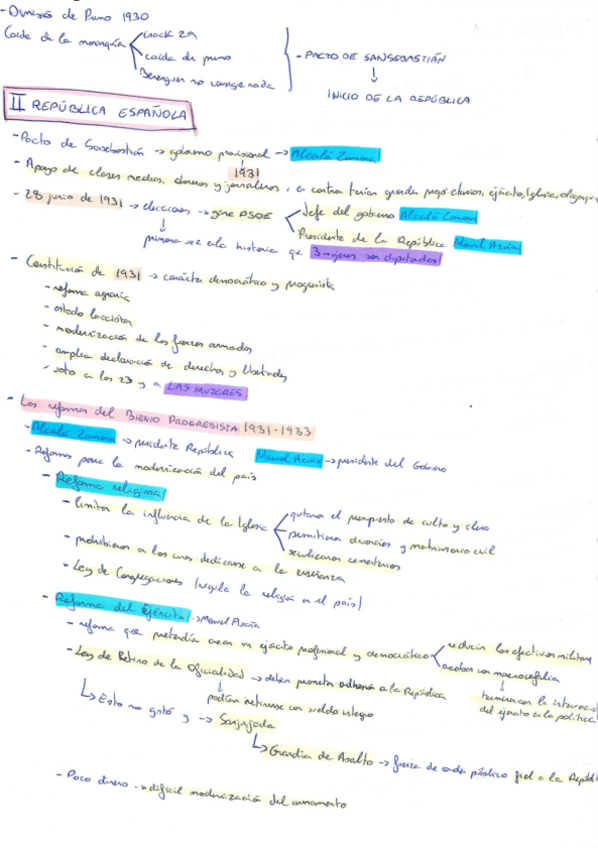 - Dimisión de Primo 1930
Caída de la monarquía
Crack 29
caída de primo
Berenguer no consigue nada
- PACTO DE SANSEBASTIÁN
↓
INICIO DE LA REPÚBLICA
II REPÚBLICA ESPAÑOLA
- Pacto de Sansebastián → gobierno provisional → Alcalá Zamora
1931
- Apoyo de clases medias, obreros y jornaleros, en contra tenían grandes propietarios, ejército, Iglesia, oligarquía
- 28 junio de 1931 → elecciones → gana PSOE
Jefe del gobierno Alcalá Zamora
Presidente de la República Manuel Azaña
↓
primera vez en la historia que 3 mujeres son diputadas
- Constitución de 1931 → carácter democrático y progresista
- reforma agraria
- estado laicista
- modernización de las fuerzas armadas
- amplia declaración de derechos y libertades
- voto a los 23 y a LAS MUJERES
- Las reformas del BIENIO PROGRESISTA 1931-1933
- Alcalá Zamora → presidente República Manuel Azaña → presidente del Gobierno
- Reformas para la modernización del país
- Reforma religiosa
- limitar la influencia de la Iglesia
quitaron el presupuesto de culto y clero
permitieron divorcios y matrimonio civil
secularizaron cementerios
- prohibieron a los curas dedicarse a la enseñanza
- Ley de Congregaciones (regula la religión en el país)
- Reforma del Ejército → Manuel Azaña
- reforma que pretendía crear un ejército profesional y democrático
reducir los efectivos militares
acabar con macrocefalia
↓
terminar con la intervención
del ejército en la política
- Ley de Retiro de la Oficialidad → deben prometer adhesión a la República
↓
podían retirarse con sueldo íntegro
↳ Esto no gustó y → Sanjurjada
↳ Guardia de Asalto → fuerza de orden público fiel a la República
- Poco dinero → difícil modernización del armamento